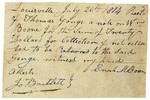 Louisville July 26th 1814 Recd
of Thomas Gange a note on Wm
Boone for the Sum of Twenty
Dollars for Collection if not collec
ted to be returned to the Said
Gange witness my hand
Attest